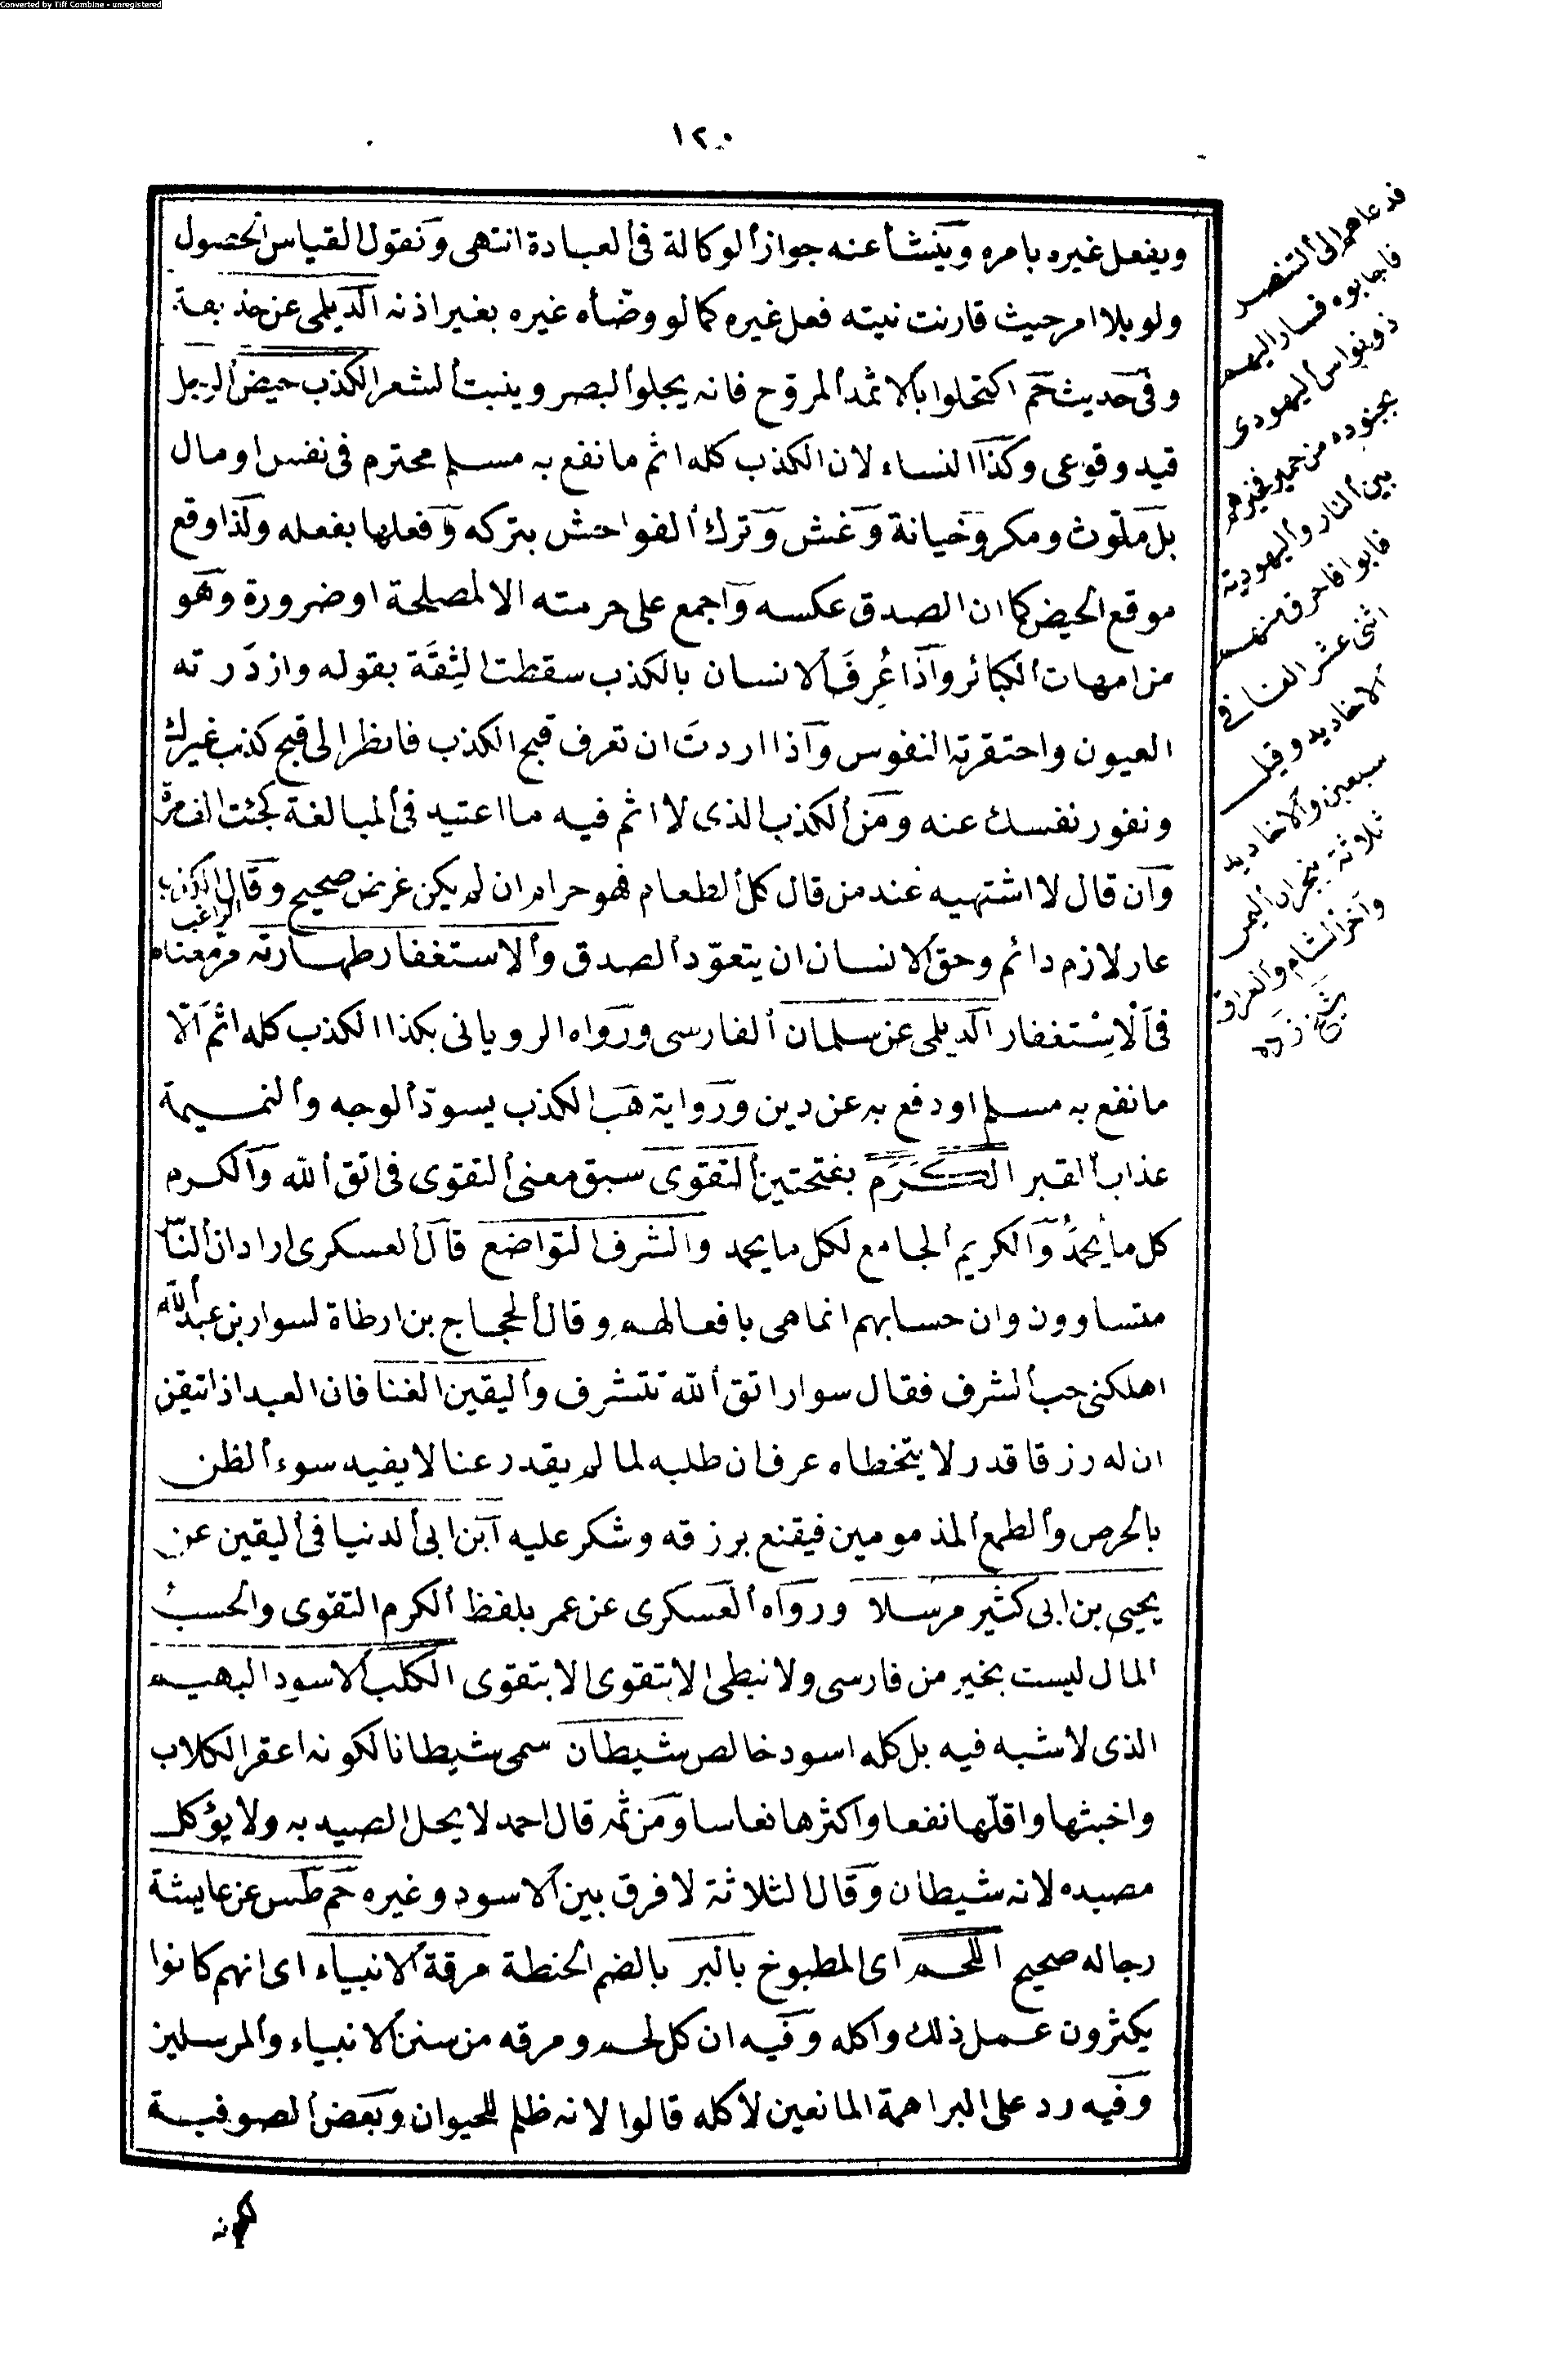 Converted by Tiff Combine - unregistered
١٢٠
ويفعل غيره بامره وينشأ عنه جواز الوكالة فى العبادة انتهى ونقول القياس الحصول
ولو بلا امر حيث قارنت نيته فعل غيره كما لو وضأه غيره بغير اذنه الديلمى عن حذيفة
وفى حديث حم اكتحلوا بالاثمد المروح فانه يجلو البصر وينبت الشعر الكذب حيض الرجل
قيد وقوعى وكذا النساء لان الكذب كله اثم ما نفع به مسلم محترم فى نفس او مال
بل ملوث ومكر وخيانة وغش وترك الفواحش بتركه وفعلها بفعله ولذا وقع
موقع الحيض كما ان الصدق عكسه واجمع على حرمته الا لمصلحة او ضرورة وهو
من امهات الكبائر واذا عُرِفَ الانسان بالكذب سقطت الثِقَة بقوله وازدَرته
العيون واحتقرته النفوس واذا اردتَ ان تعرف قبح الكذب فانظر الى قبح كذب غيرك
ونفور نفسك عنه ومن الكذب الذى لا اثم فيه ما اعتيد فى المبالغة كجئت الف مرة
وان قال لا اشتهيه عند من قال كل الطعام فهو حرام ان لم يكن غرض صحيح وقال الراغب الكذب
عار لازم دائم وحق الانسان ان يتعوّد الصدق والاستغفار طهارته مر معناه
فى الاِسْتغفار الديلمى عن سلمان الفارسى ورواه الرويانى بكذا الكذب كله اثم الّا
ما نفع به مسلم او دفع به عن دين ورواية هب الكذب يسودّ الوجه والنميمة
عذاب القبر الكَرَم بفتحتين التقوى سبق معنى التقوى فى اتق الله والكرم
كل ما يُحمَدُ والكريم الجامع لكل ما يحمد والشرف التواضع قال العسكرى اراد ان الناس
متساوون وان حسابهم انما هى بافعالهم وقال الحجاج بن ارطاة لسوار بن عبد الله
اهلكنى حب الشرف فقال سوار اتق الله تتشرف واليقين الغنا فان العبد اذا تيقن
ان له رزقا قدر لا يتخطاه عرف ان طلبه لما لم يقدر عنا لا يفيد سوء الظن
بالحرص والطمع المذمومين فيقنع برزقه وشكر عليه ابن ابى الدنيا فى اليقين عن
يحيى بن ابى كثير مرسلا ورواه العسكرى عن عمر بلفظ الكرم التقوى والحسبُ
المال ليست بخير من فارسى ولا نبطى الا بتقوى الا بتقوى الكلب الاسود البهيم
الذى لا شبه فيه بل كله اسود خالص شيطان سمى شيطانا لكونه اعقر الكلاب
واخبثها واقلّها نفعا واكثرها نعاسا ومن ثمه قال احمد لا يحل الصيد به ولا يؤكل
مصيده لانه شيطان وقال الثلاثة لا فرق بين الاسود وغيره حم طس عن عايشة
رجاله صحيح اللحم اى المطبوخ بالبر بالضم الحنطة مرقة الانبياء اى انهم كانوا
يكثرون عمل ذلك واكله وفيه ان كل لحم ومرقه من سنن الانبياء والمرسلين
وفيه رد على البراهمة المانعين لاكله قالوا لانه ظلم للحيوان وبعض الصوفية
فدعاهم الى التنصر
فاجابوه فسار اليهم
ذو نواس اليهودى
بجنوده من حمير فخيرهم
بين النار واليهودية
فابوا فاحرق منهم
اثنى عشر الفا فى
الاخاديد وقيل
سبعين والاخاديد
ثلاثة بنجران اليمن
وآخر الشام والعراق